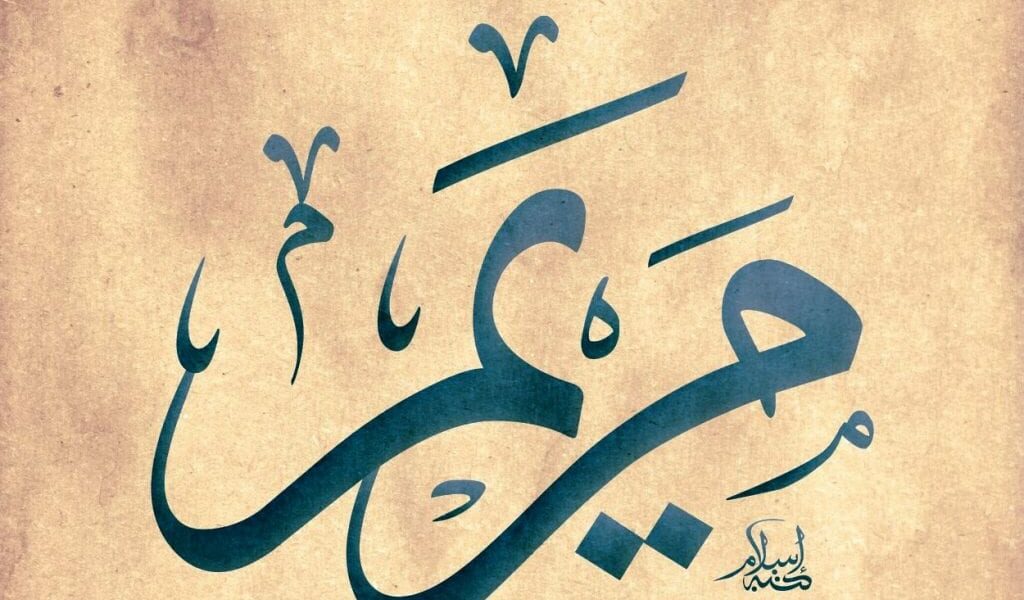 مَرْيَم
كتبه إسلام